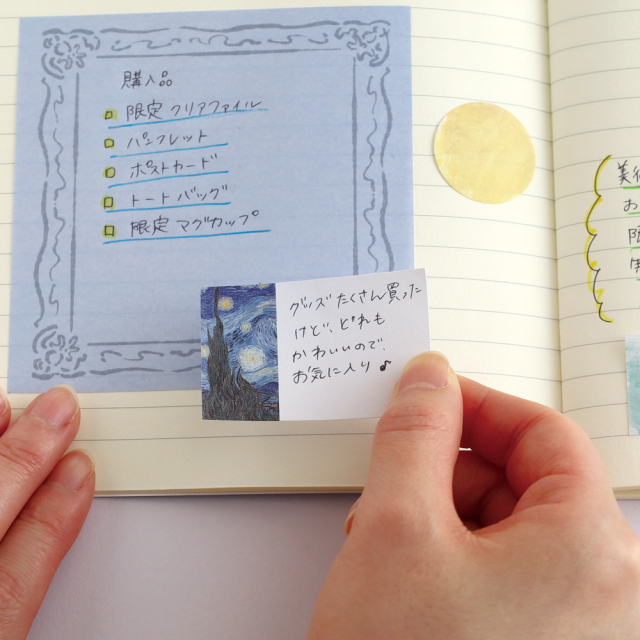 購入品
限定クリアファイル
パンフレット
ポストカード
トートバッグ
限定マグカップ
グッズたくさん買った
けど、どれも
かわいいので
お気に入り♪
美術
お